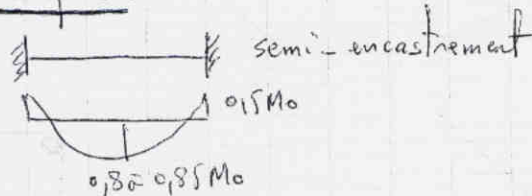 semi-encastrement
0,15Mo
0,8 à 0,85Mo